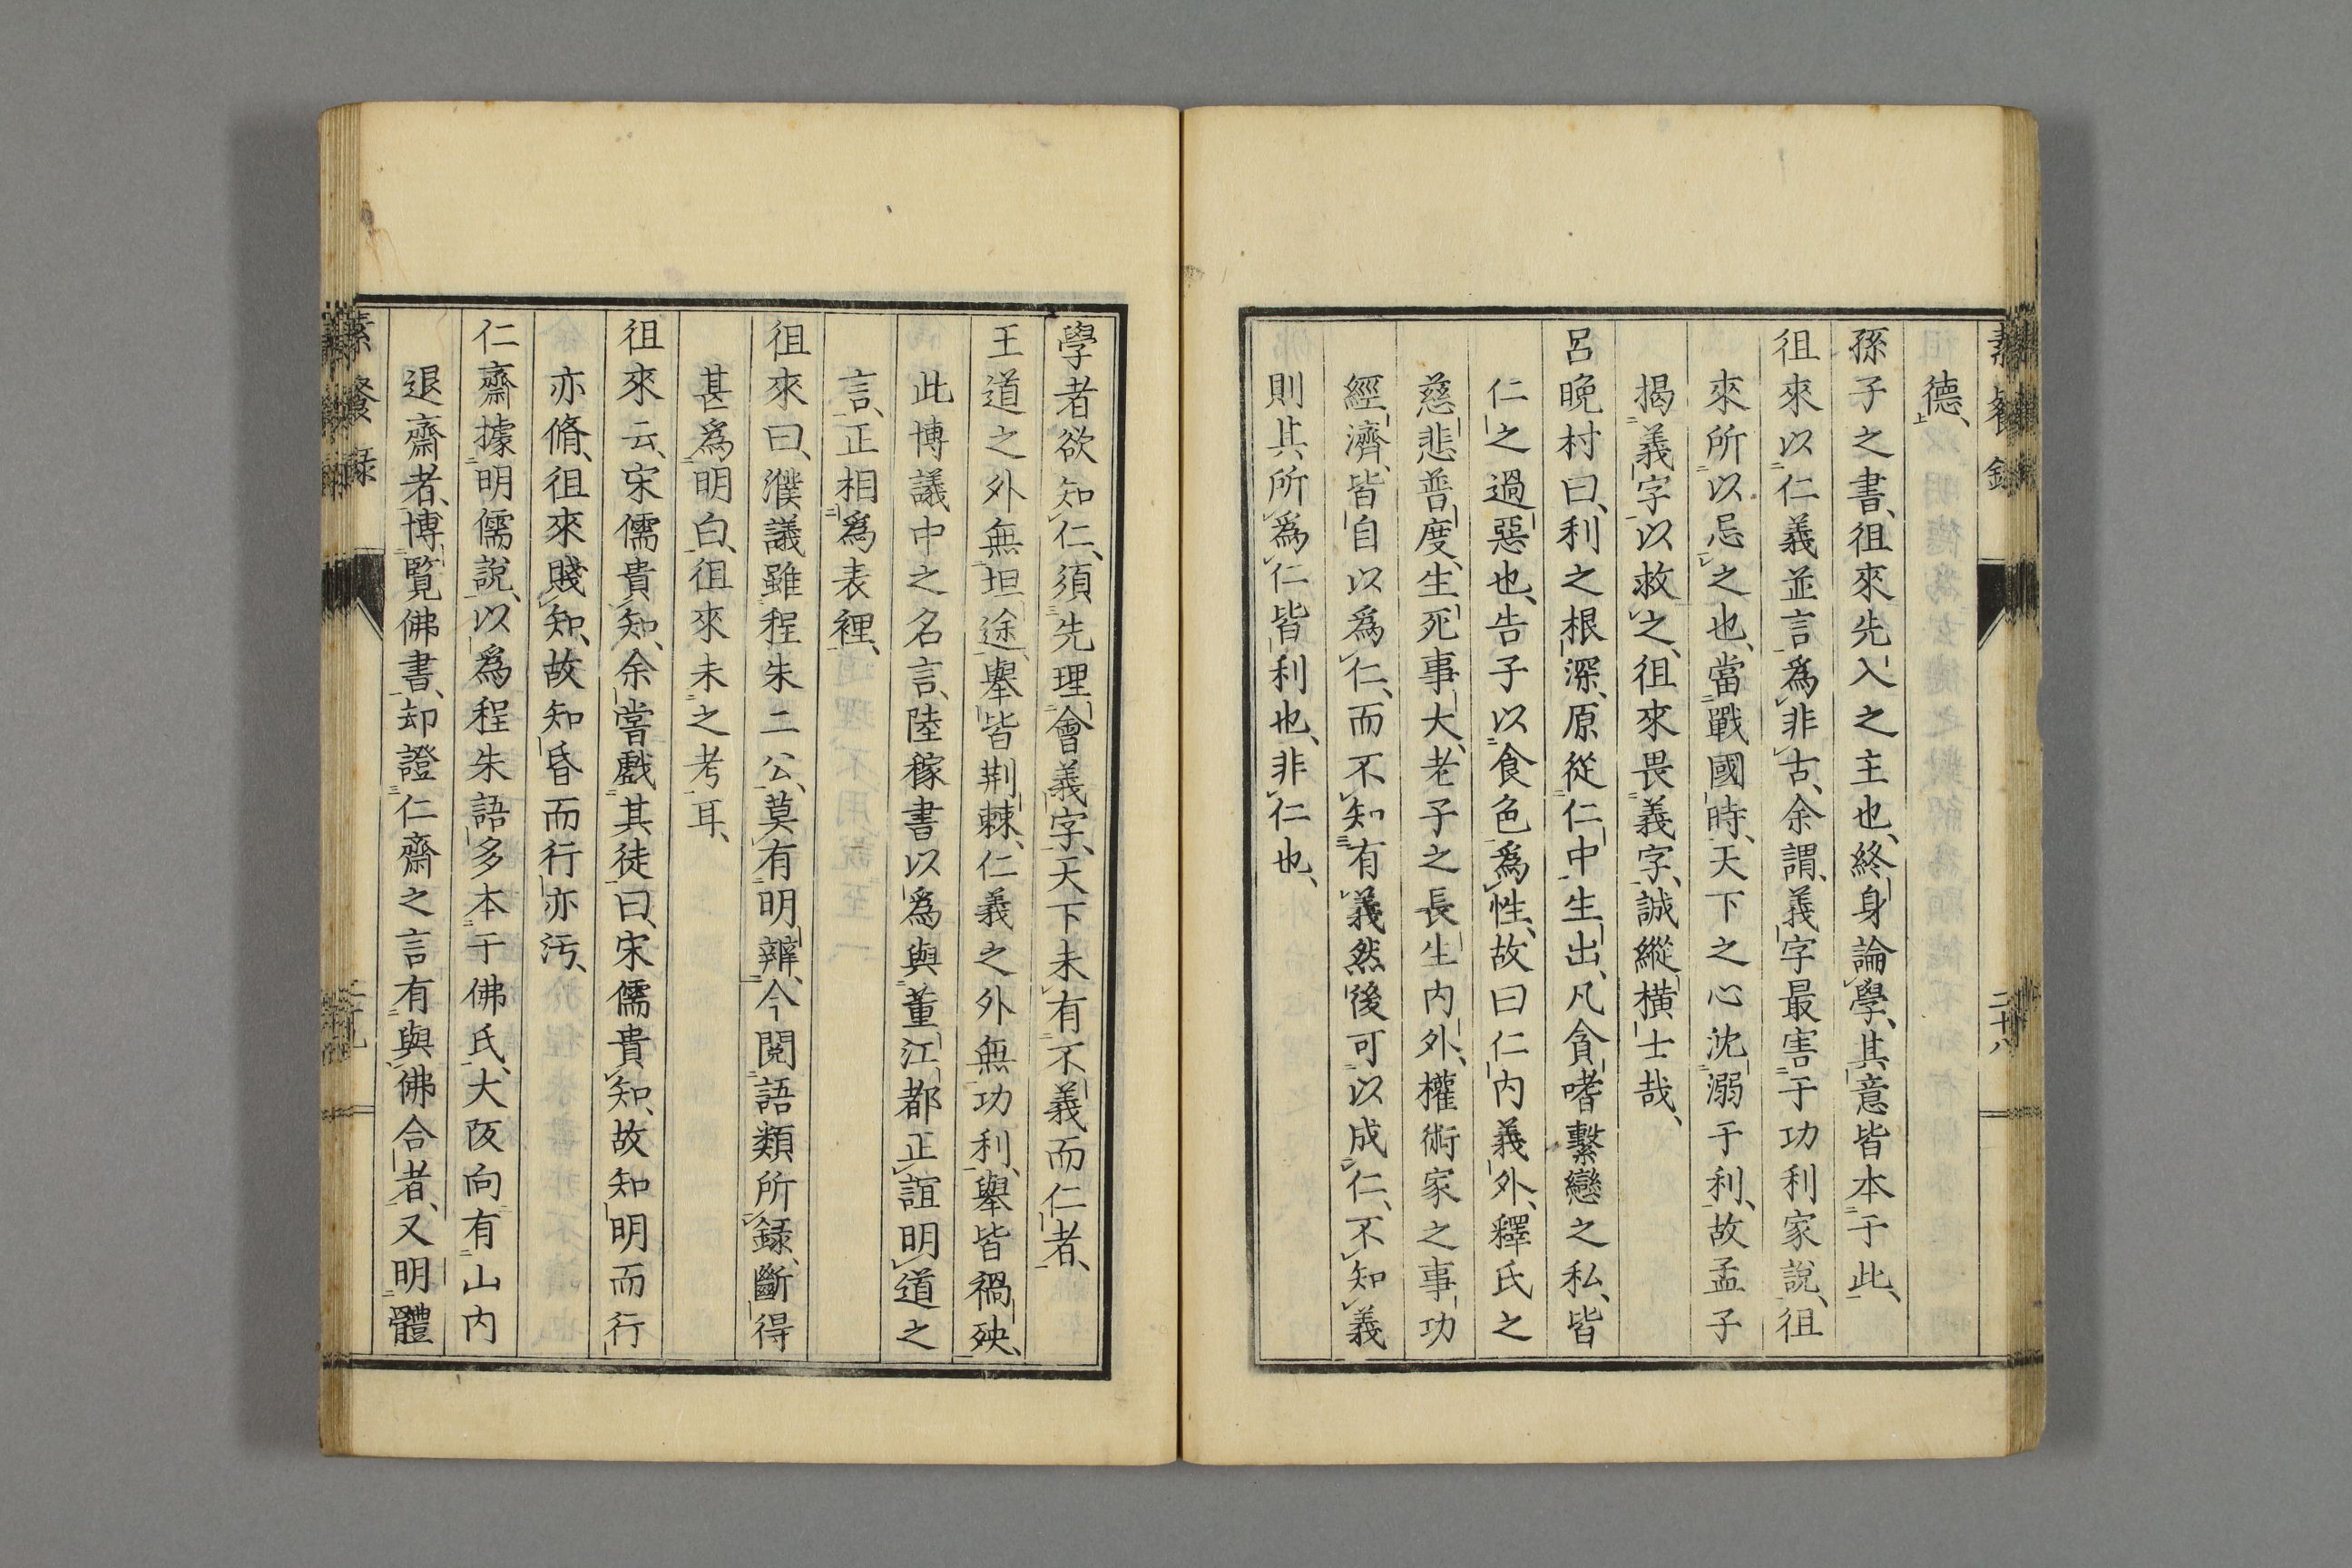 素餐錄
二十八
德、
孫子之書、徂來先入之主也、終身論學、其意皆本于此、
徂來以仁義並言爲非古、余謂、義字最害于功利家說、徂
來所以忌之也、當戰國時、天下之心沈溺于利、故孟子
揭義字以救之、徂來畏義字、誠縱橫士哉、
呂晚村曰、利之根深、原從仁中生出、凡貪嗜繫戀之私、皆
仁之過惡也、告子以食色爲性、故曰仁內義外、釋氏之
慈悲普度、生死事大、老子之長生內外、權術家之事功
經濟、皆自以爲仁、而不知有義然後可以成仁、不知義
則其所爲仁皆利也、非仁也、
學者欲知仁、須先理會義字、天下未有不義而仁者、
王道之外無坦途、舉皆荆棘、仁義之外無功利、舉皆禍殃、
此博議中之名言、陸稼書以爲與董江都正誼明道之
言、正相爲表裡、
徂來曰、濮議雖程朱二公、莫有明辯、今閱語類所錄、斷得
甚爲明白、徂來未之考耳、
徂來云、宋儒貴知、余嘗戲其徒曰、宋儒貴知、故知明而行
亦脩、徂來賤知、故知昏而行亦汚、
仁齋據明儒說、以爲程朱語多本于佛氏、大阪向有山內
退齋者、博覽佛書、却證仁齋之言有與佛合者、又明體
素餐錄